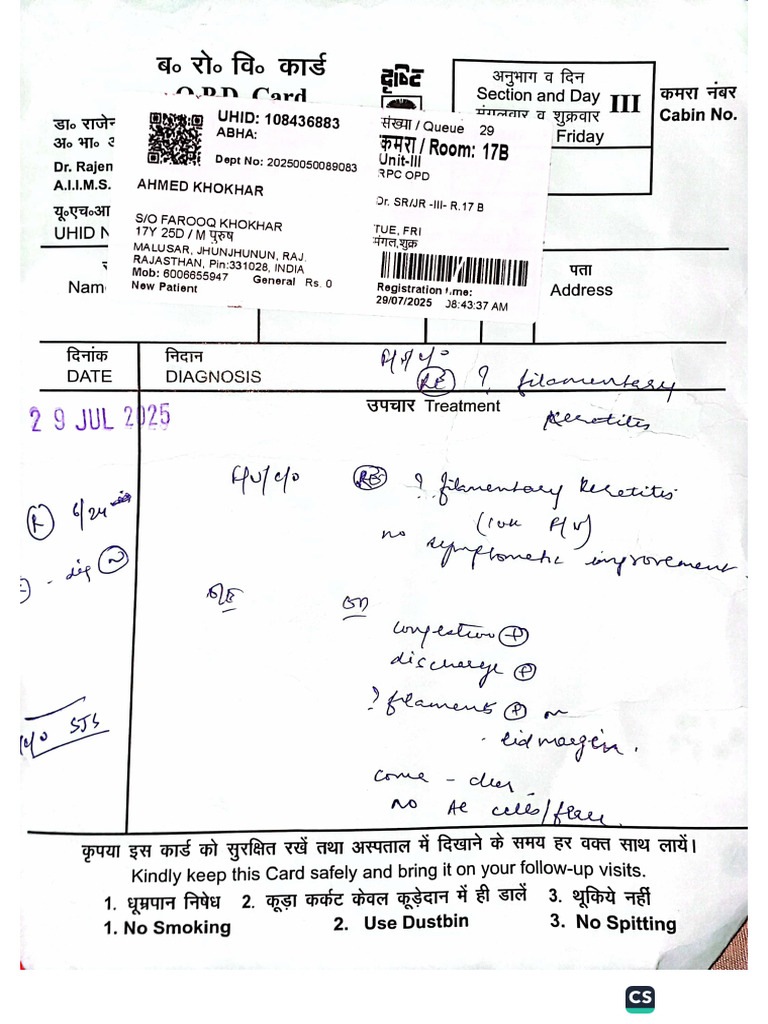 ब० रो० वि० कार्ड
O.P.D. Card
दृष्टि
अनुभाग व दिन
Section and Day
मंगलवार व शुक्रवार
Friday
III
कमरा नंबर
Cabin No.
डा० राजे
अ० भा०
Dr. Rajen
A.I.I.M.S.
यू०एच०आ
UHID N
UHID: 108436883
ABHA:
Dept No: 20250050089083
AHMED KHOKHAR
S/O FAROOQ KHOKHAR
17Y 25D / M पुरुष
MALUSAR, JHUNJHUNUN, RAJ.
RAJASTHAN, Pin:331028, INDIA
Mob: 6006655947 General Rs. 0
New Patient
संख्या / Queue 29
कमरा / Room: 17B
Unit-III
RPC OPD
Dr. SR/JR -III- R.17 B
TUE, FRI
मंगल,शुक्र
Registration time:
29/07/2025 08:43:37 AM
Nam
पता
Address
दिनांक
DATE
निदान
DIAGNOSIS
RE ? filamentary
keratitis
उपचार Treatment
29 JUL 2025
F/U/C/O RE ? filamentary keratitis
no symptomatic improvement
R 6/24
- dig N
congestion +
discharge +
? filaments + on
lid margin.
SJS
no AC cells/flare
कृपया इस कार्ड को सुरक्षित रखें तथा अस्पताल में दिखाने के समय हर वक्त साथ लायें।
Kindly keep this Card safely and bring it on your follow-up visits.
1. धूम्रपान निषेध 2. कूड़ा कर्कट केवल कूड़ेदान में ही डालें 3. थूकिये नहीं
1. No Smoking 2. Use Dustbin 3. No Spitting
CS